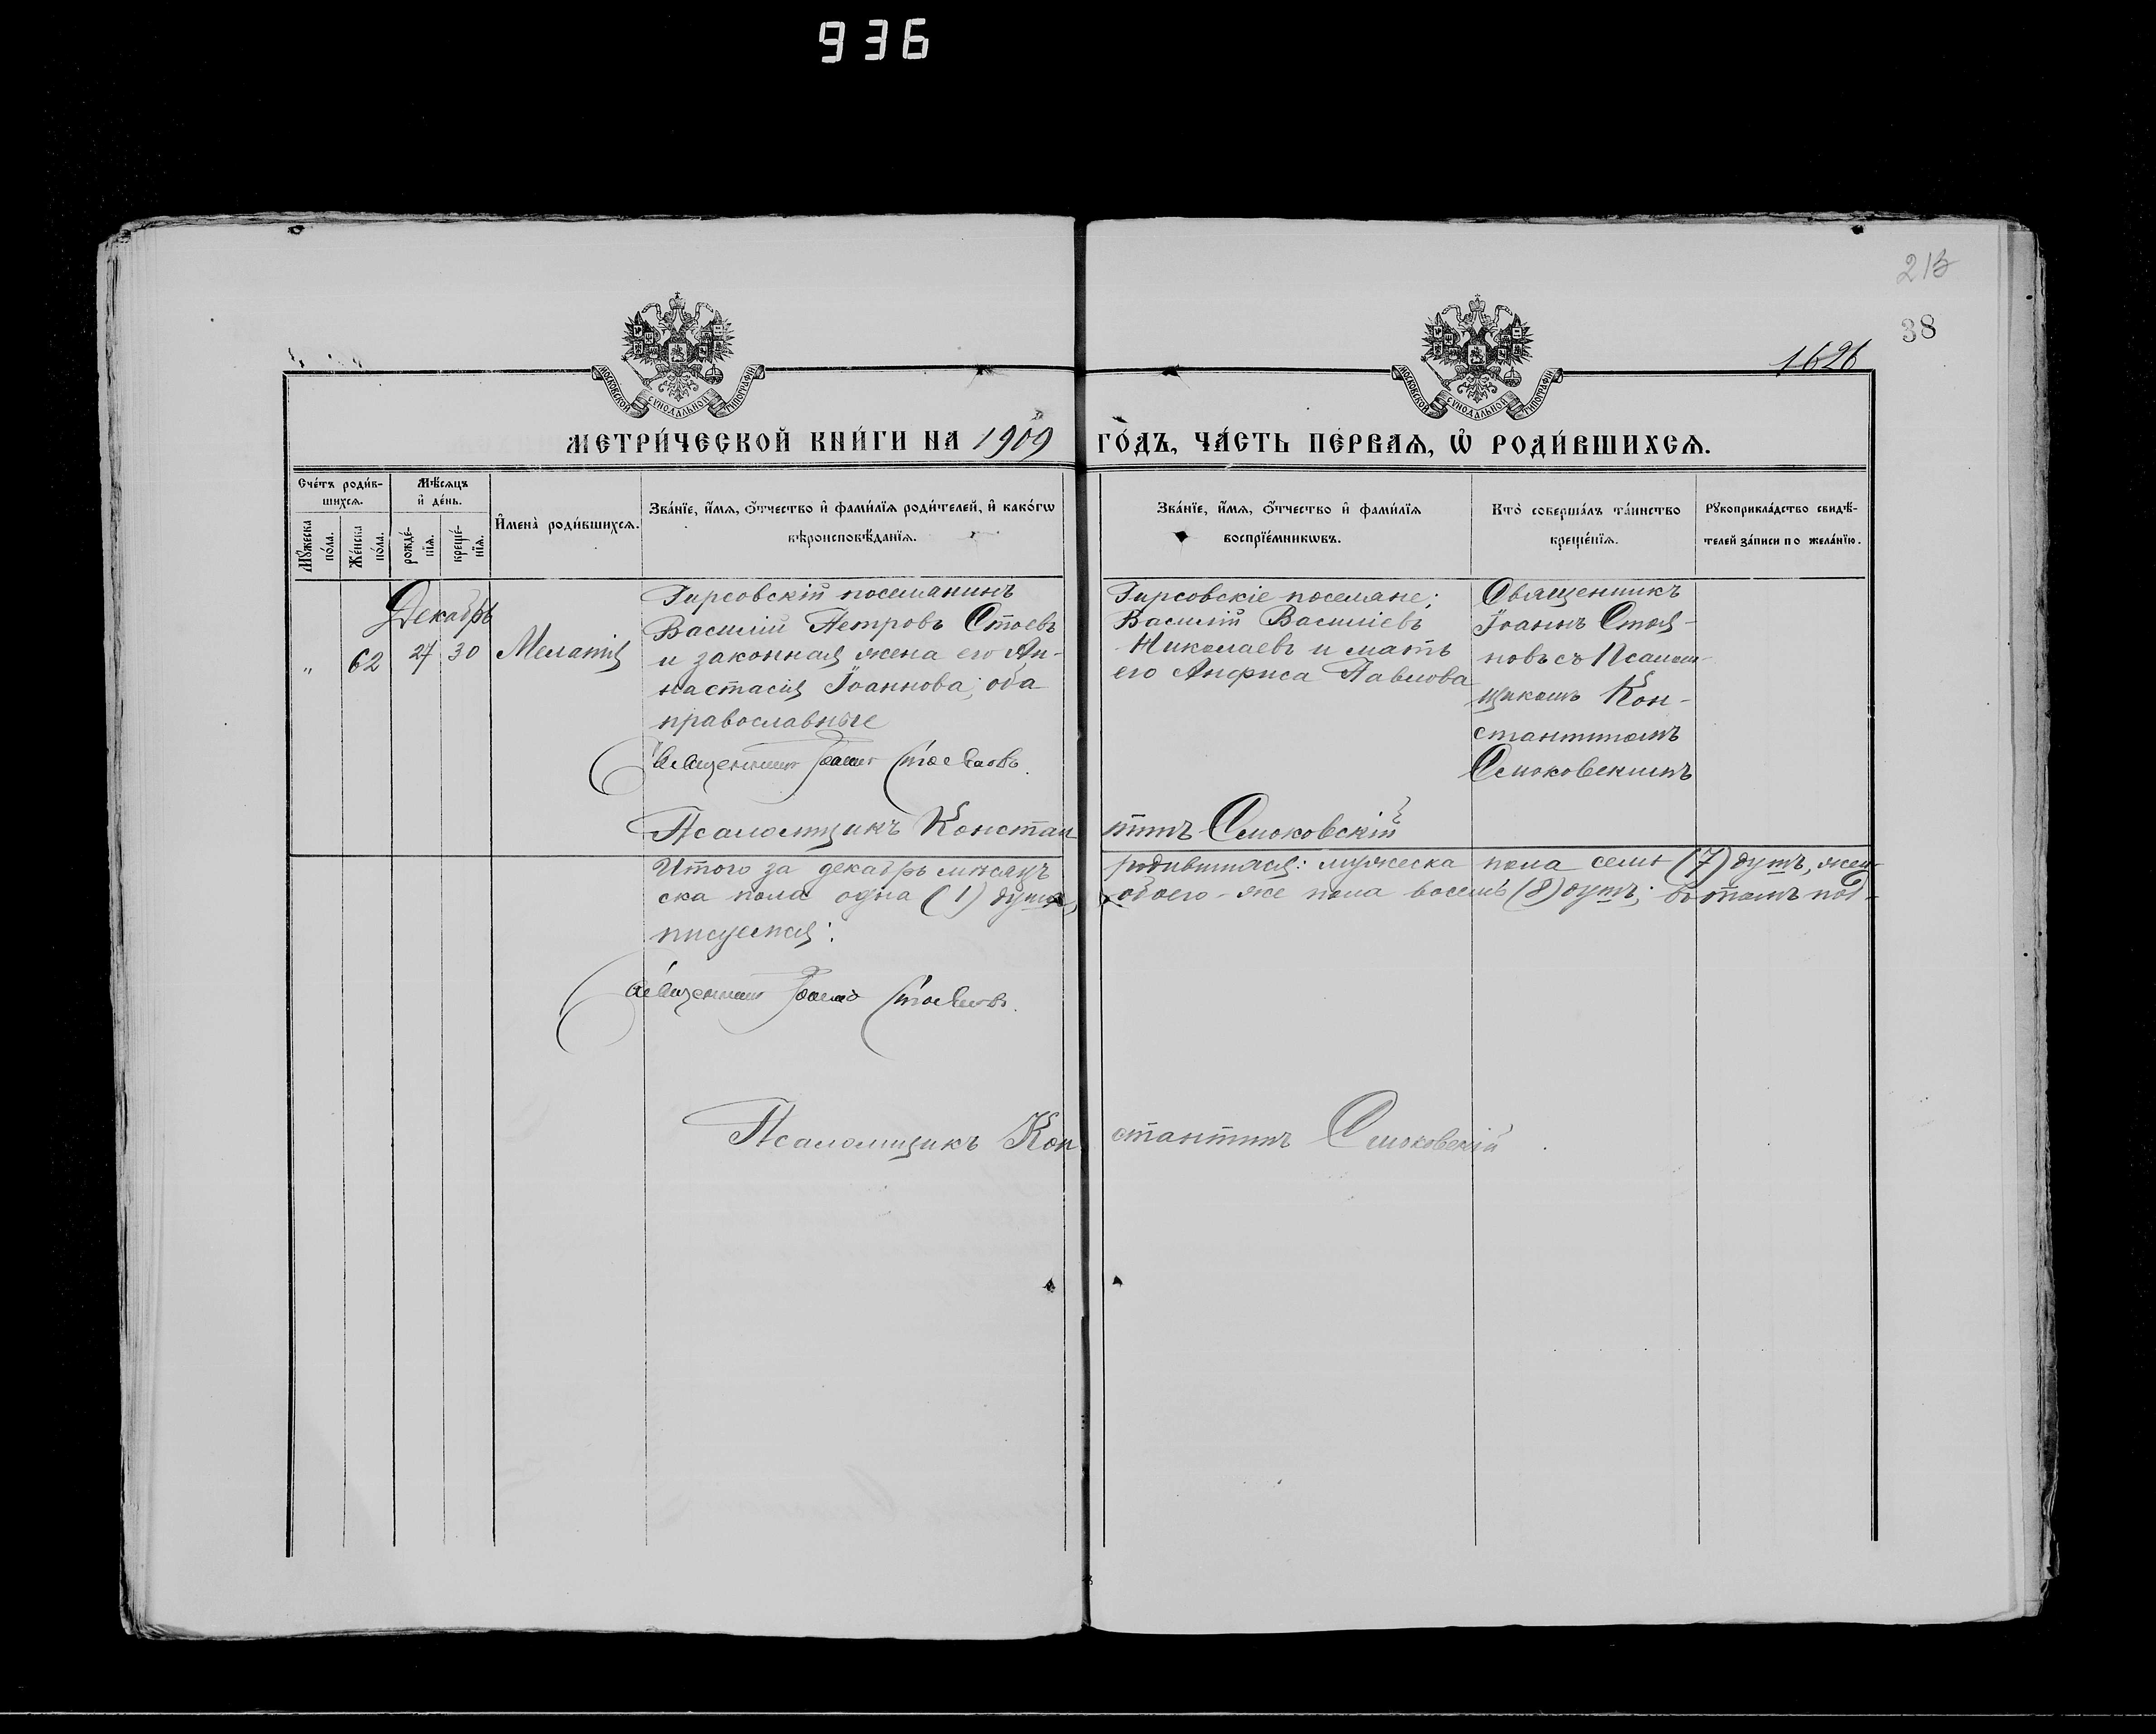 936
213
38
1626
МОСКОВСКОЙ СѴНОДАЛЬНОЙ ТИПОГРАФІИ
МОСКОВСКОЙ СѴНОДАЛЬНОЙ ТИПОГРАФІИ
МЕТРИ́ЧЕСКОЙ КНИ́ГИ НА 1909 ГО́ДЪ, ЧА́СТЬ ПЕ́РВАѦ, Ѡ҆ РОДИ́ВШИХСѦ.
Сче́тъ роди́в-
шихсѧ.
Мꙋ́жеска по́ла.
Же́нска по́ла.
Мѣ́сѧцъ
и҆ де́нь.
рожде́-
нїѧ.
креще́-
нїѧ.
И҆мена̀ роди́вшихсѧ.
Зва́нїе, и҆́мѧ, ѻ҆́тчество и҆ фами́лїѧ роди́телей, и҆ како́гѡ
вѣроисповѣ́данїѧ.
Зва́нїе, и҆́мѧ, ѻ҆́тчество и҆ фами́лїѧ
воспрїе́мникѡвъ.
Кто̀ соверша́лъ та́инство
креще́нїѧ.
Рꙋкоприкла́дство свидѣ́-
телей за́писи по жела́нїю.
Декабрь
„ 62 27 30 Мелатія
Гирсовскій поселянинъ
Василій Петровъ Стоевъ
и законная жена его Ан-
настасія Іоаннова; оба
православные
Священникъ Іоаннъ Стояновъ.
Гирсовскіе поселяне:
Василій Василіевъ
Николаевъ и мать
его Анфиса Павлова
Священникъ
Іоаннъ Стоя-
новъ съ Псалом-
щикомъ Кон-
стантиномъ
Смоковскимъ
Псаломщикъ Константинъ Смоковскій
Итого за декабрь мѣсяцъ родившихся: мужеска пола семь (7) душъ, жен-
ска пола одна (1) душа, обоего-же пола восемь (8) душъ; въ томъ под-
писуемся:
Священникъ Іоаннъ Стояновъ.
Псаломщикъ Константинъ Смоковскій